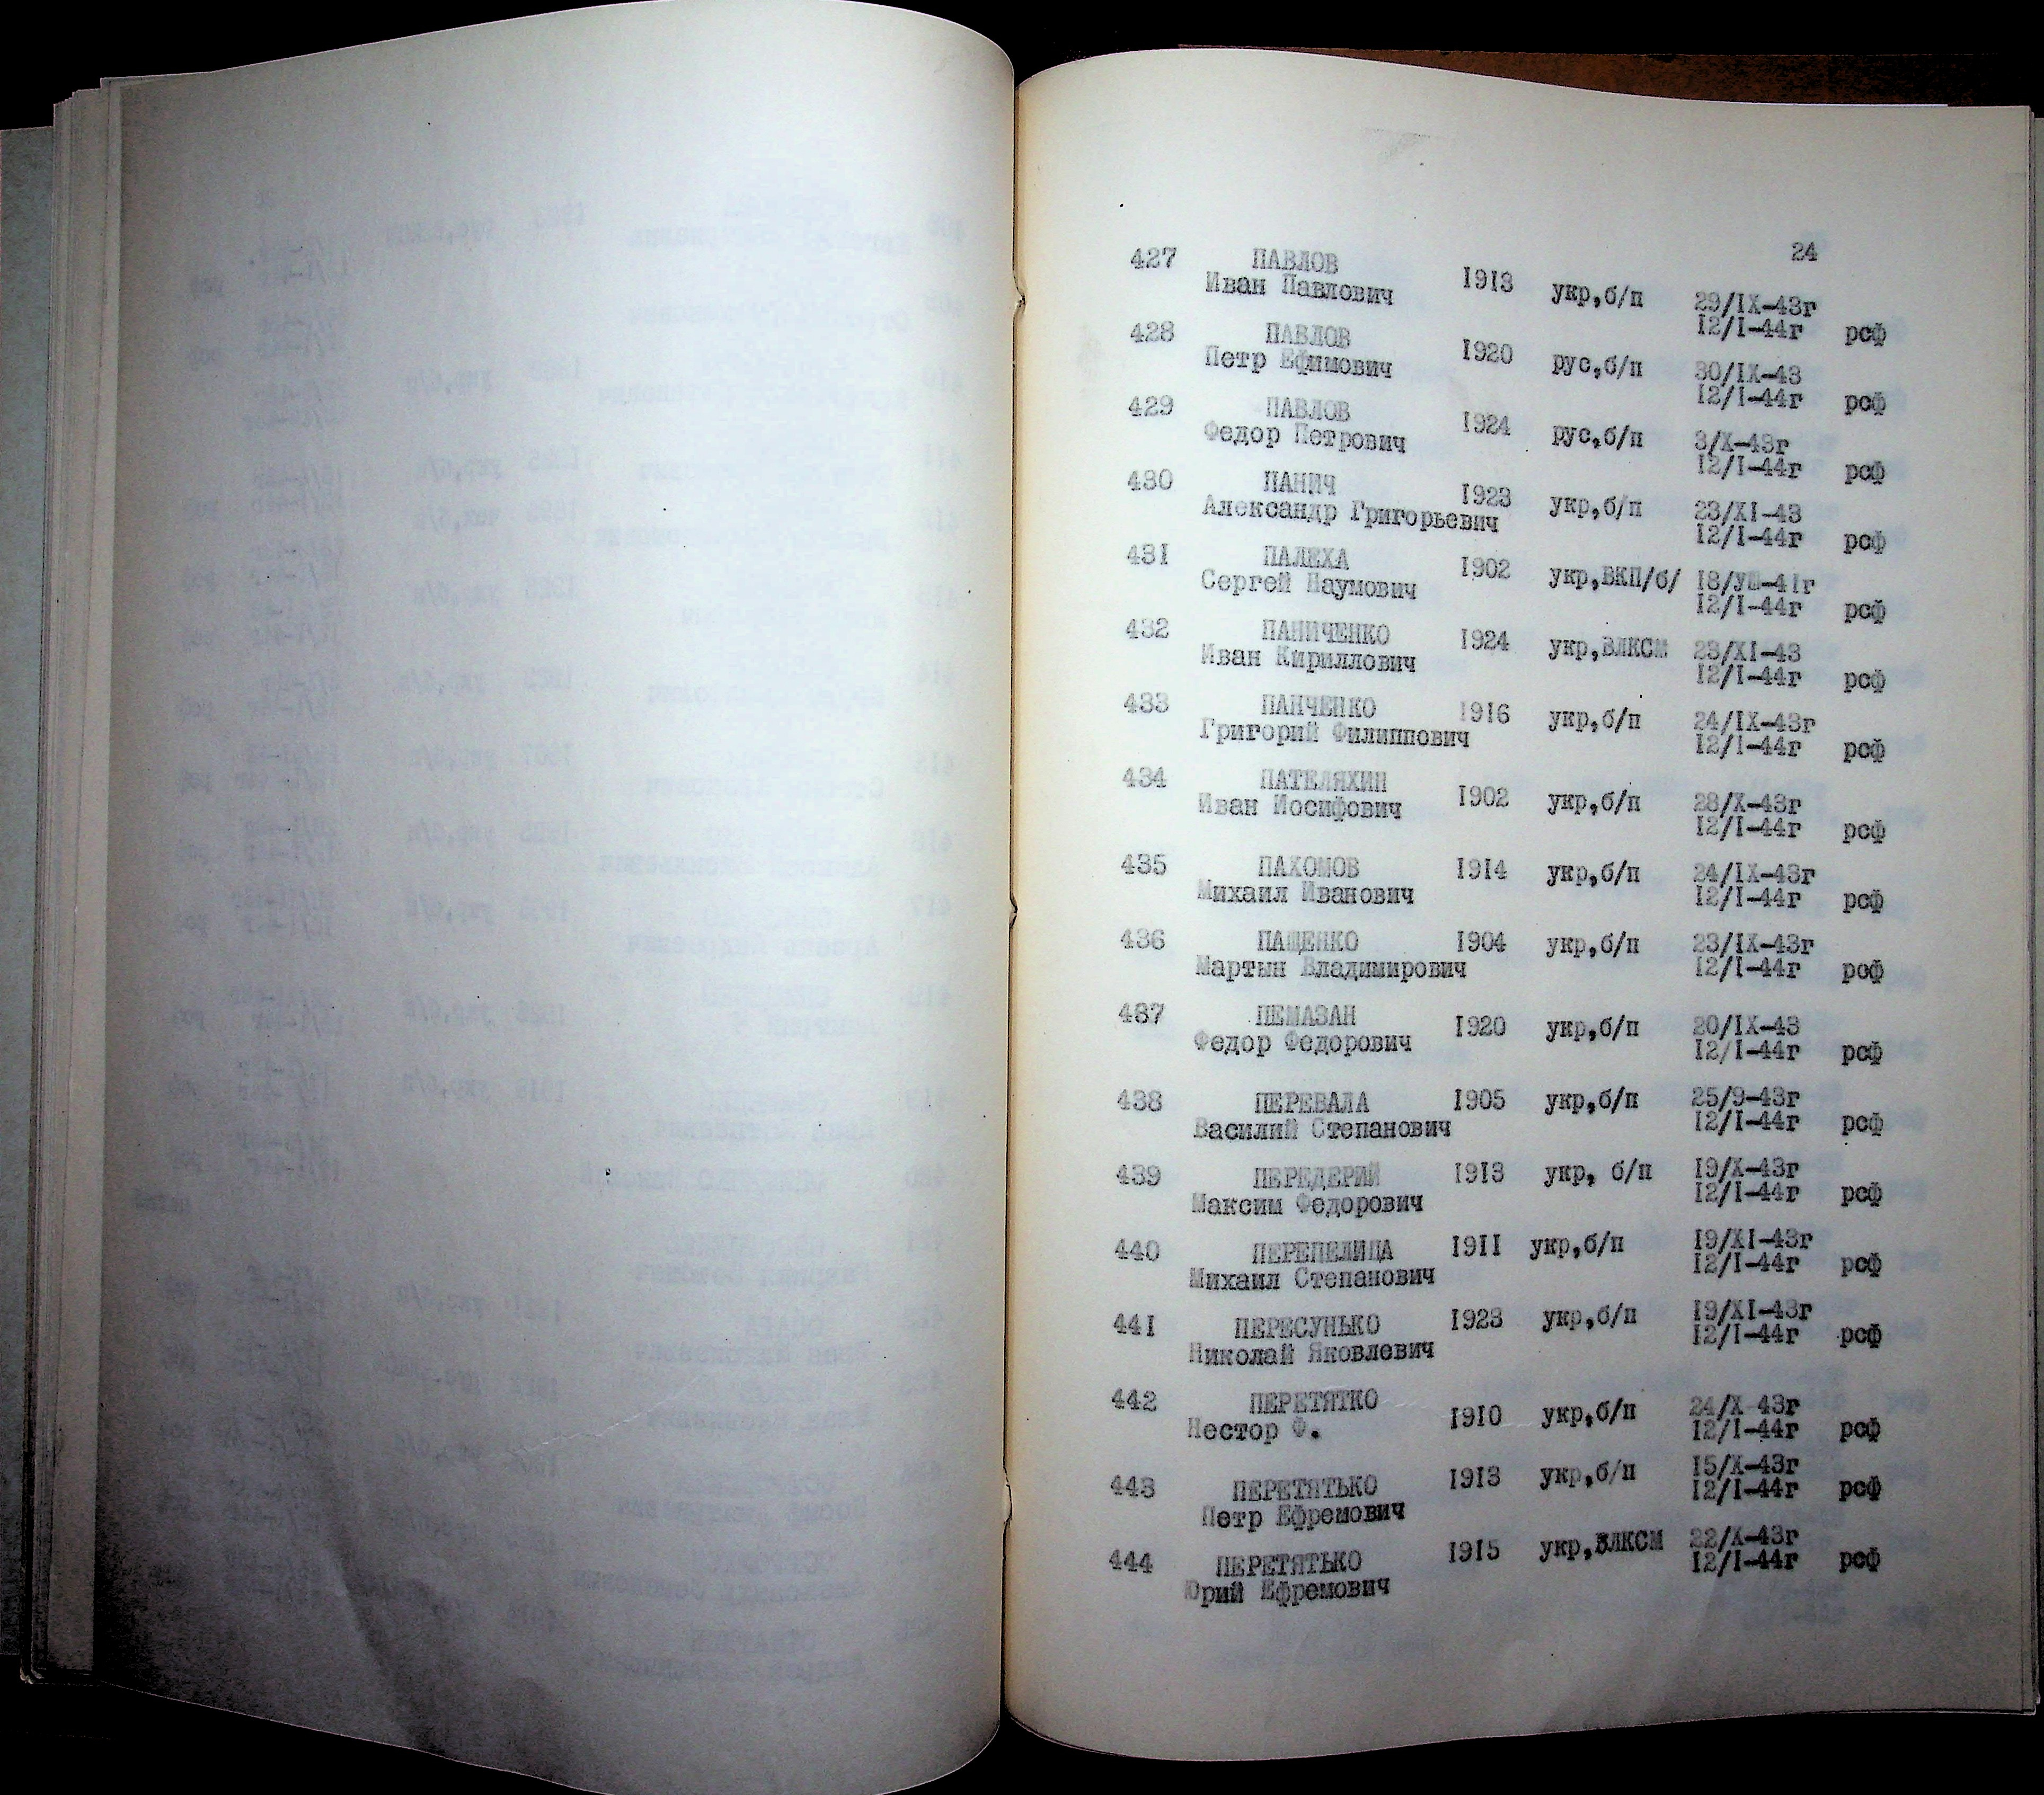 24
427 ПАВЛОВ
Иван Павлович 1913 укр,б/п 29/IX-43г
12/I-44г рсф
428 ПАВЛОВ
Петр Ефимович 1920 рус,б/п 30/IX-43
12/I-44г рсф
429 ПАВЛОВ
Федор Петрович 1924 рус,б/п 3/X-43г
12/I-44г рсф
430 ПАНИЧ 1923
Александр Григорьевич укр,б/п 23/XI-43
12/I-44г рсф
431 ПАЛЕХА 1902 укр,ВКП/б/ 18/УШ-41г
Сергей Наумович 12/I-44г рсф
432 ПАНИЧЕНКО 1924 укр,ВЛКСМ 23/XI-43
Иван Кириллович 12/I-44г рсф
433 ПАНЧЕНКО 1916 укр,б/п 24/IX-43г
Григорий Филиппович 12/I-44г рсф
434 ПАТЕЛЯХИН 1902 укр,б/п 28/X-43г
Иван Иосифович 12/I-44г рсф
435 ПАХОМОВ 1914 укр,б/п 24/IX-43г
Михаил Иванович 12/I-44г рсф
436 ПАЩЕНКО 1904 укр,б/п 23/IX-43г
Мартын Владимирович 12/I-44г рсф
437 ПЕМАЗАН 1920 укр,б/п 20/IX-43
Федор Федорович 12/I-44г рсф
438 ПЕРЕВАЛА 1905 укр,б/п 25/9-43г
Василий Степанович 12/I-44г рсф
439 ПЕРЕДЕРИЙ 1913 укр, б/п 19/X-43г
Максим Федорович 12/I-44г рсф
440 ПЕРЕПЕЛИЦА 1911 укр,б/п 19/XI-43г
Михаил Степанович 12/I-44г рсф
441 ПЕРЕСУНЬКО 1923 укр,б/п 19/XI-43г
Николай Яковлевич 12/I-44г рсф
442 ПЕРЕТЯТКО 1910 укр,б/п 24/X-43г
Нестор Ф. 12/I-44г рсф
443 ПЕРЕТЯТЬКО 1913 укр,б/п 15/X-43г
Петр Ефремович 12/I-44г рсф
444 ПЕРЕТЯТЬКО 1915 укр,ВЛКСМ 22/X-43г
Юрий Ефремович 12/I-44г рсф